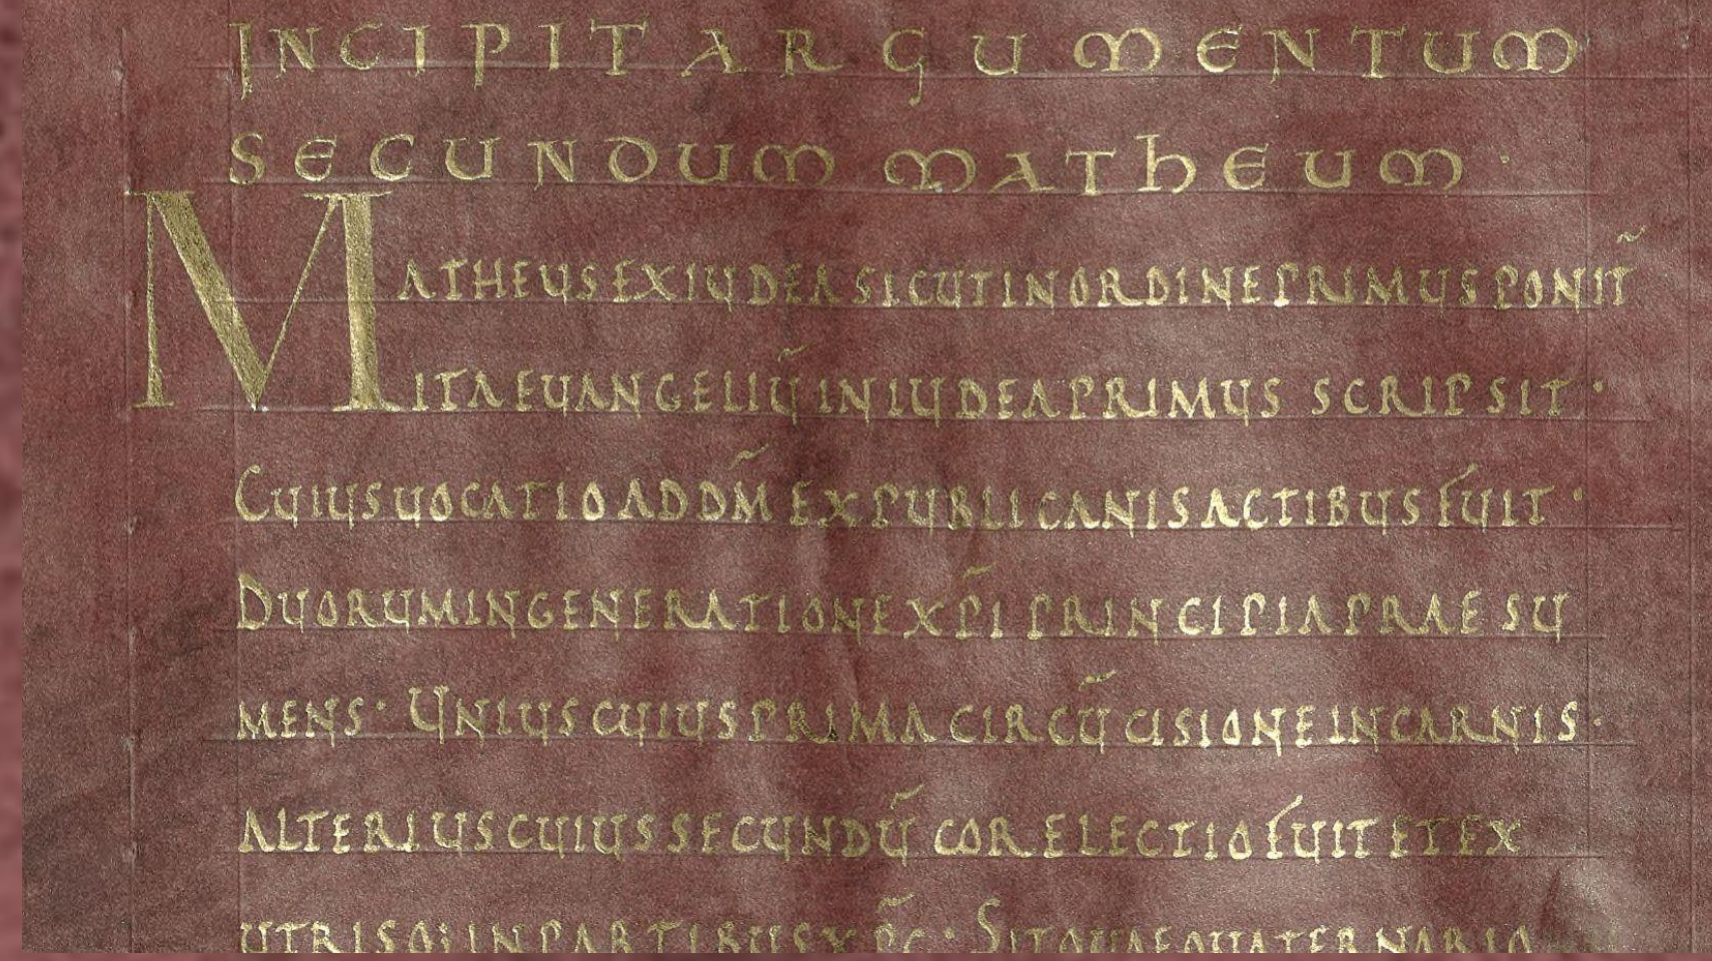 INCIPIT ARGUMENTUM
SECUNDUM MATHEUM·
MATHEUS EX IUDEA SICUT IN ORDINE PRIMUS PONIT̃
ITA EUANGELIŨ IN IUDEA PRIMUS SCRIPSIT·
CUIUS UOCATIO AD DM̃ EX PUBLICANIS ACTIBUS FUIT·
DUORUM IN GENERATIONE XP̃I PRINCIPIA PRAESU
MENS· UNIUS CUIUS PRIMA CIRCŨCISIONE IN CARNIS·
ALTERIUS CUIUS SECUNDŨ COR ELECTIO FUIT ET EX
UTRISQ; IN PARTIBUS XP̃C· SITQUAE QUATERNARIO